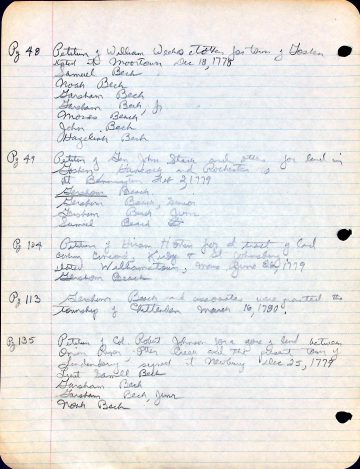 Pg 48 Petition of William Weeks others for town of Goshen
dated at Moortown Dec 18, 1778
Samuel Bech
Noah Bech
Garsham Bech
Garsham Bech, Jr
Moses Beach
John Bech
Hazeliah Bech
Pg 49 Petition of Gen John Stark and others for land in
Goshen, Danbury and Rochester
at Bennington Feb 3, 1779
Gershom Beach
Gershom Beach, Senior
Gershom Beach Junr
Samuel Beach
Pg 104 Petition of Hiram for a tract of land
dated Williamstown, Mass June 1779
Gershom Beach
Pg 113 Gershom Beach and associates were granted the
township of Chittenden March 16, 1780.
Pg 135 Petition of Col Robert Johnson for a gore of land between
Onion River Otter Creek and the present town of
signed at Newbury Dec 25, 1779
Lieut Samll Bech
Garsham Bech
Garsham Bech, Junr
Noah Bech